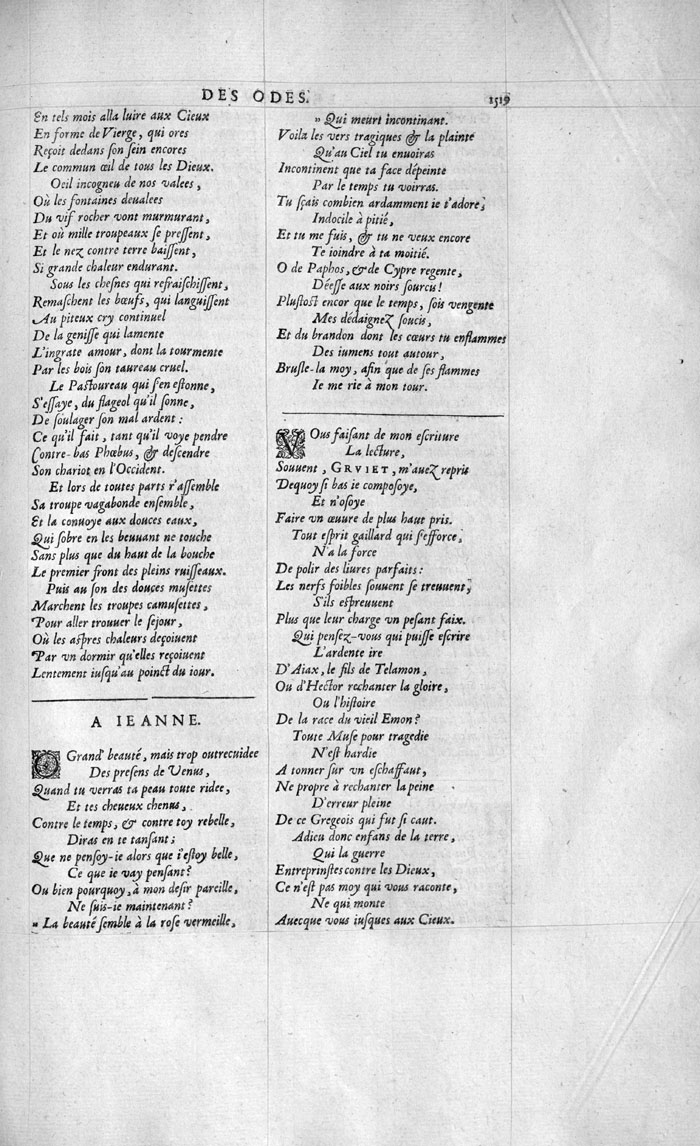 DES ODES.
1519
En tels mois alla luire aux Cieux
En forme de Vierge, qui ores
Reçoit dedans son sein encores
Le commun œil de tous les Dieux.
Oeil incogneu de nos valees,
Où les fontaines deualees
Du vif rocher vont murmurant,
Et où mille troupeaux se pressent,
Et le nez contre terre baissent,
Si grande chaleur endurant.
Sous les chesnes qui refraischissent,
Remaschent les bœufs, qui languissent
Au piteux cry continuel
De la genisse qui lamente
L'ingrate amour, dont la tourmente
Par les bois son taureau cruel.
Le Pastoureau qui s'en estonne,
S'essaye, du flageol qu'il sonne,
De soulager son mal ardent:
Ce qu'il fait, tant qu'il voye pendre
Contre-bas Phœbus, & descendre
Son chariot en l'Occident.
Et lors de toutes parts r'assemble
Sa troupe vagabonde ensemble,
Et la conuoye aux douces eaux,
Qui sobre en les beuuant ne touche
Sans plus que du haut de la bouche
Le premier front des pleins ruisseaux.
Puis au son des douces musettes
Marchent les troupes camusettes,
Pour aller trouuer le sejour,
Où les aspres chaleurs deçoiuent
Par vn dormir qu'elles reçoiuent
Lentement iusqu'au poinct du iour.
A IEANNE.
O Grand' beauté, mais trop outrecuidee
Des presens de Venus,
Quand tu verras ta peau toute ridee,
Et tes cheueux chenus,
Contre le temps, & contre toy rebelle,
Diras en te tansant;
Que ne pensoy-ie alors que i'estoy belle,
Ce que ie vay pensant?
Ou bien pourquoy, à mon desir pareille,
Ne suis-ie maintenant?
" La beauté semble à la rose vermeille,
" Qui meurt incontinant.
Voila les vers tragiques & la plainte
Qu'au Ciel tu enuoiras
Incontinent que ta face dépeinte
Par le temps tu voirras.
Tu sçais combien ardamment ie t'adore,
Indocile à pitié,
Et tu me fuis, & tu ne veux encore
Te ioindre à ta moitié.
O de Paphos, & de Cypre regente,
Déesse aux noirs sourcis!
Plustost encor que le temps, sois vengente
Mes dédaignez soucis,
Et du brandon dont les cœurs tu enflammes
Des iumens tout autour,
Brusle-la moy, afin que de ses flammes
Ie me rie à mon tour.
VOus faisant de mon escriture
La lecture,
Souuent, GRVIET, m'auez repris
Dequoy si bas ie composoye,
Et n'osoye
Faire vn œuure de plus haut pris.
Tout esprit gaillard qui s'efforce,
N'a la force
De polir des liures parfaits:
Les nerfs foibles souuent se treuuent,
S'ils espreuuent
Plus que leur charge vn pesant faix.
Qui pensez-vous qui puisse escrire
L'ardente ire
D'Aiax, le fils de Telamon,
Ou d'Hector rechanter la gloire,
Ou l'histoire
De la race du vieil Emon?
Toute Muse pour tragedie
N'est hardie
A tonner sur vn eschaffaut,
Ne propre à rechanter la peine
D'erreur pleine
De ce Gregeois qui fut si caut.
Adieu donc enfans de la terre,
Qui la guerre
Entreprinstes contre les Dieux,
Ce n'est pas moy qui vous raconte,
Ne qui monte
Auecque vous iusques aux Cieux.